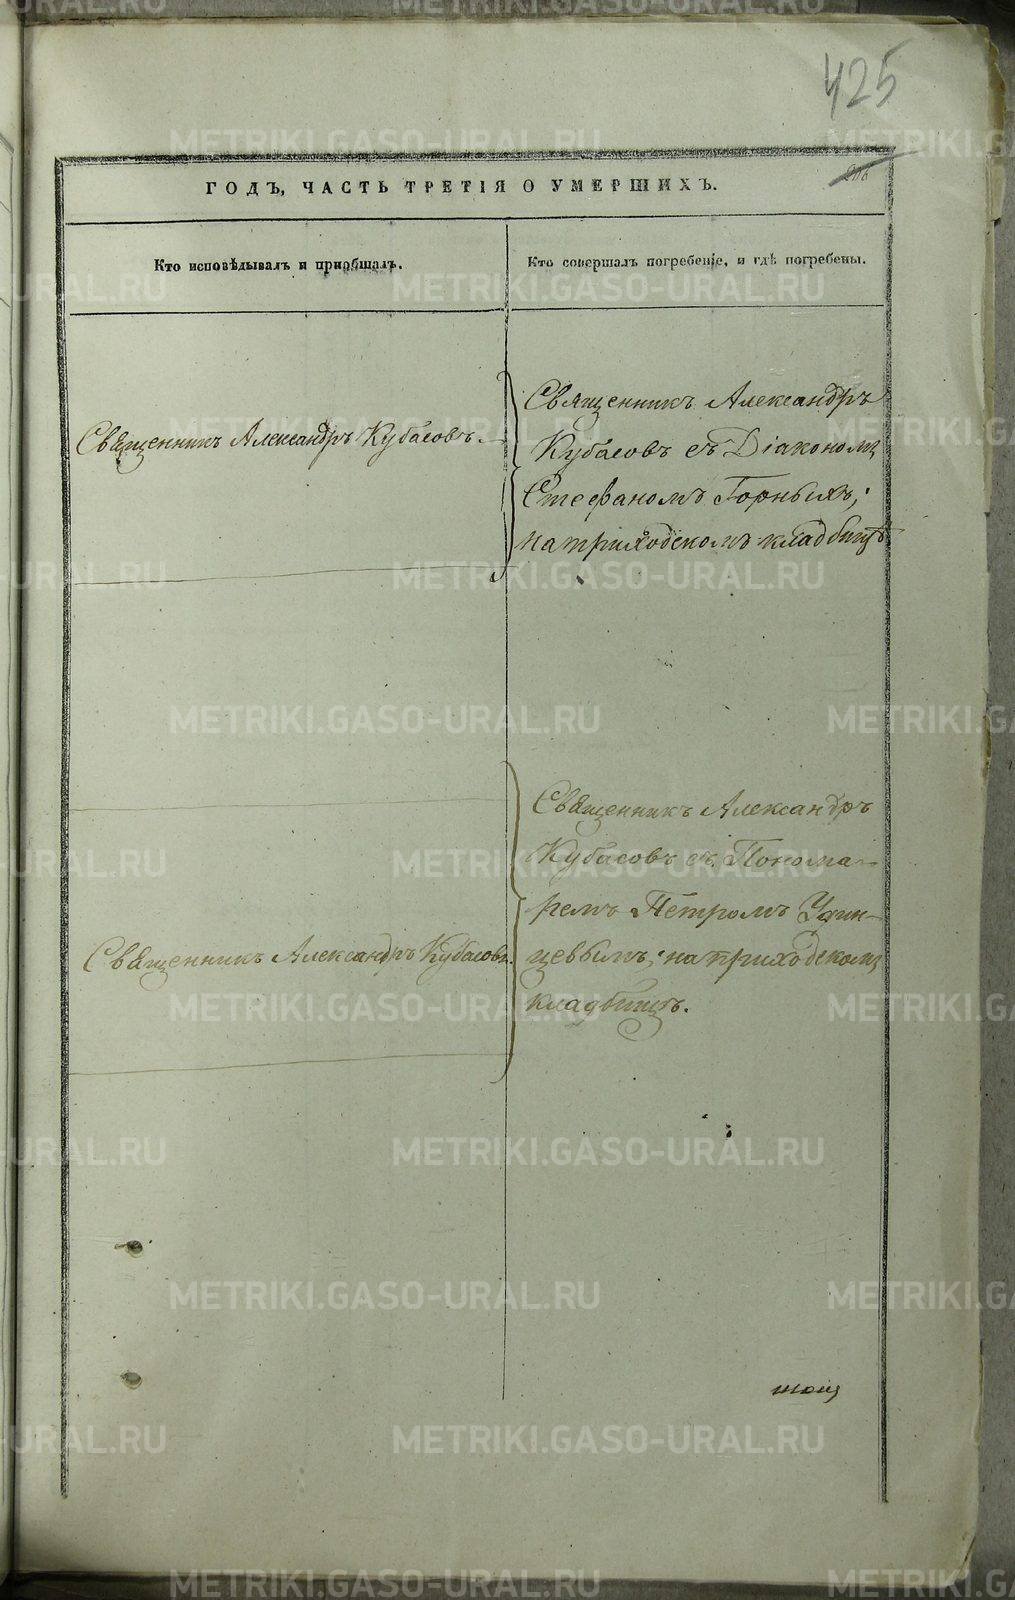 425
ГОДЪ, ЧАСТЬ ТРЕТІЯ О УМЕРШИХЪ.
Кто исповѣдывалъ и пріобщалъ.
Кто совершалъ погребеніе, и гдѣ погребены.
Священникъ Александръ Кубасовъ.
Священникъ Александръ
Кубасовъ съ Діакономъ
Стефаномъ Горныхъ;
на приходскомъ кладбищѣ
Священникъ Александръ Кубасовъ.
Священникъ Александръ
Кубасовъ съ Понома-
ремъ Петромъ Удин-
цевымъ; на приходскомъ
кладбищѣ.
METRIKI.GASO-URAL.RU